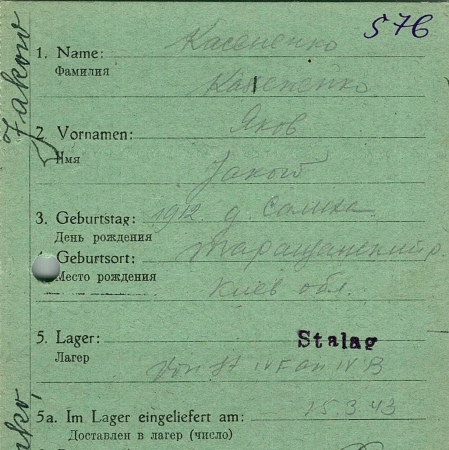 576
Jakow
1. Name: Касененко
Фамилия
Кахененко
2. Vornamen: Яков
Имя
Jakow
3. Geburtstag: 1912. д. Салиха
День рождения
4. Geburtsort: Таращанский р.
Место рождения
Киев обл.
5. Lager: Stalag
Лагер
Von St IV F an IV B
5a. Im Lager eingeliefert am: 15.3.43
Доставлен в лагер (число)